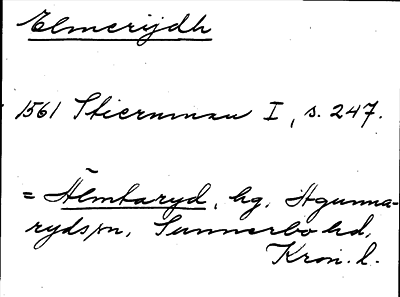 Elmerijdh
1561 Stiernman I, s. 247.
= Älmtaryd, hg, Agunna-
ryds sn, Sunnerbo hd,
Kron. l.